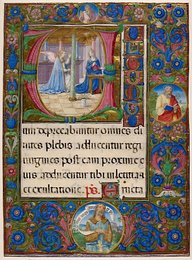 V
tuum deprecabuntur omnes di
uites plebis adducentur regi
uirgines post eam proxime e
ius adducentur tibi in letitia
et exultatione. ps. Eructa